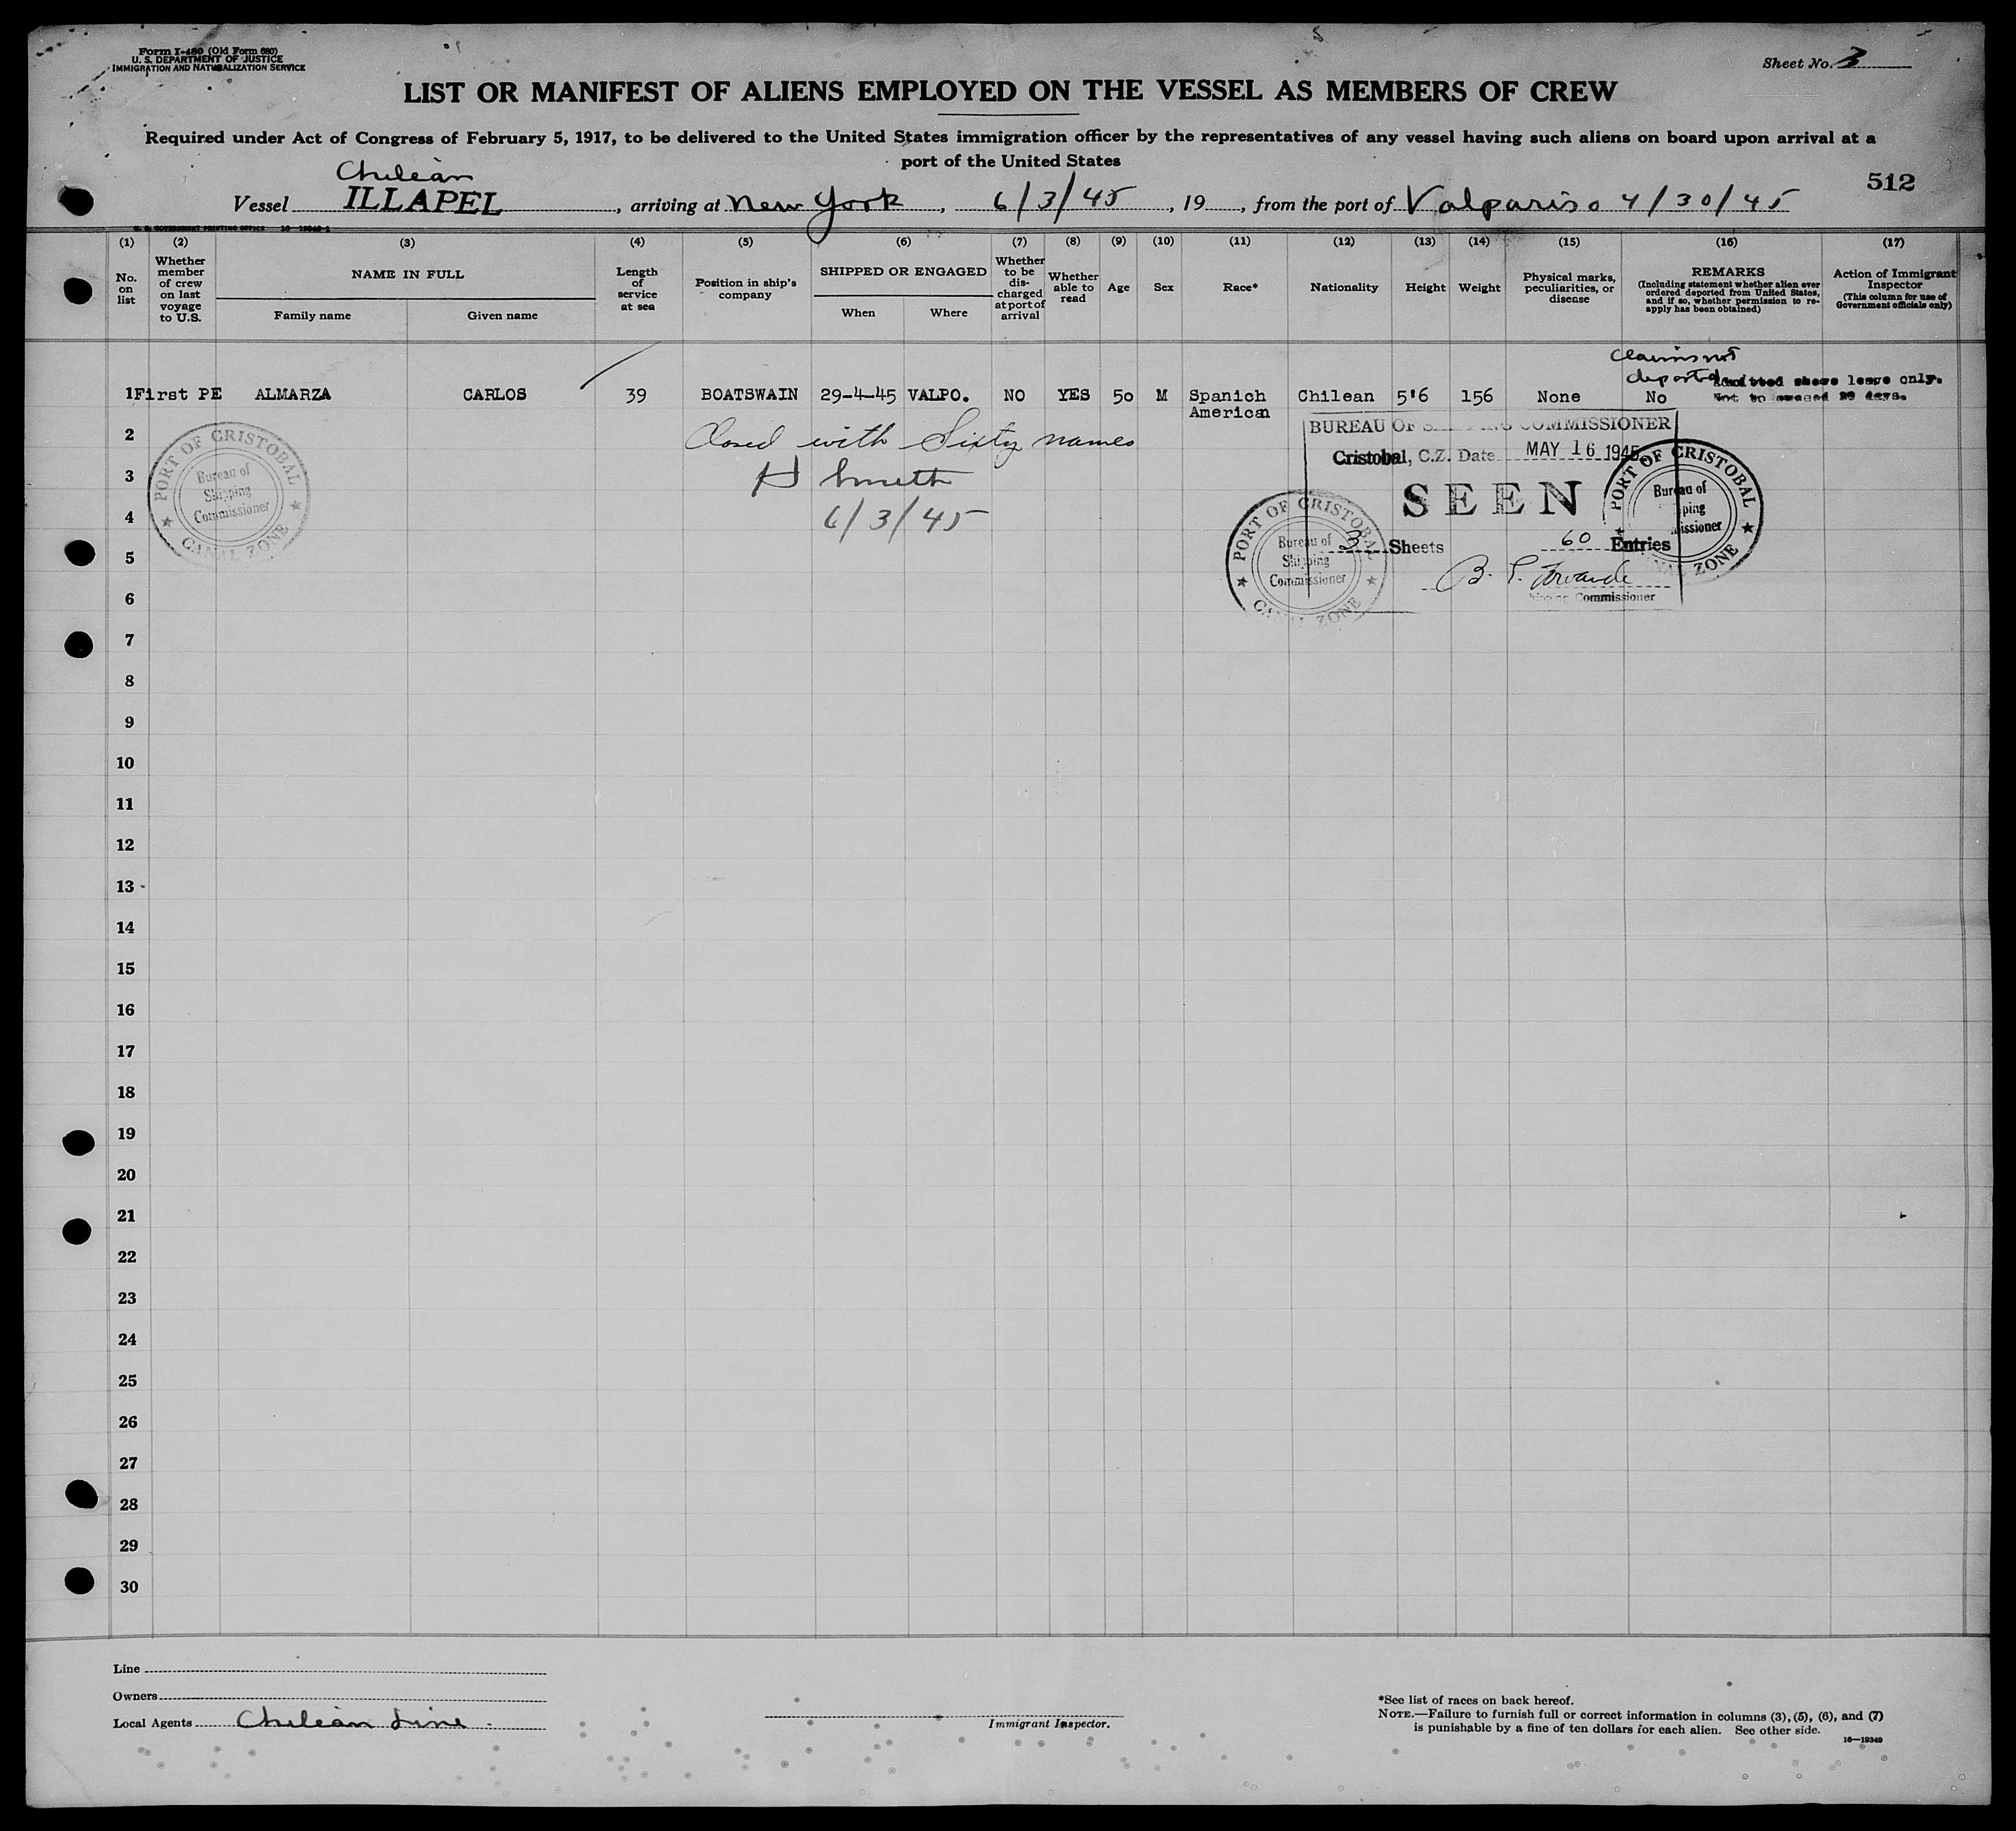 Form I-480 (Old Form 680)
U. S. DEPARTMENT OF JUSTICE
IMMIGRATION AND NATURALIZATION SERVICE
Sheet No. 3
LIST OR MANIFEST OF ALIENS EMPLOYED ON THE VESSEL AS MEMBERS OF CREW
Required under Act of Congress of February 5, 1917, to be delivered to the United States immigration officer by the representatives of any vessel having such aliens on board upon arrival at a
port of the United States
512
Chilean
Vessel ILLAPEL, arriving at New York, 6/3/45, 19, from the port of Valpariso 4/30/45
U. S. GOVERNMENT PRINTING OFFICE
(1) (2) (3) (4) (5) (6) (7) (8) (9) (10) (11) (12) (13) (14) (15) (16) (17)
No. on list
Whether member of crew on last voyage to U.S.
NAME IN FULL
Family name
Given name
Length of service at sea
Position in ship's company
SHIPPED OR ENGAGED
When
Where
Whether to be discharged at port of arrival
Whether able to read
Age
Sex
Race*
Nationality
Height
Weight
Physical marks, peculiarities, or disease
REMARKS
(Including statement whether alien ever ordered deported from United States, and if so, whether permission to reapply has been obtained)
Action of Immigrant Inspector
(This column for use of Government officials only)
Claims not
deported
Admitted shore leave only.
1 First PE ALMARZA CARLOS 39 BOATSWAIN 29-4-45 VALPO. NO YES 50 M Spanich Chilean 5'6 156 None No Not to exceed 29 days.
American
2
Closed with Sixty names
BUREAU OF SHIPPING COMMISSIONER
Cristobal, C.Z. Date MAY 16 1945
3
H Smith
SEEN
4
6/3/45
3 Sheets 60 Entries
Shipping Commissioner
PORT OF CRISTOBAL
Bureau of
Shipping
Commissioner
CANAL ZONE
PORT OF CRISTOBAL
Bureau of
Shipping
Commissioner
CANAL ZONE
PORT OF CRISTOBAL
Bureau of
ping
issioner
ZONE
5
6
7
8
9
10
11
12
13
14
15
16
17
18
19
20
21
22
23
24
25
26
27
28
29
30
Line
Owners
Local Agents Chilean Line
Immigrant Inspector.
*See list of races on back hereof.
NOTE.—Failure to furnish full or correct information in columns (3), (5), (6), and (7)
is punishable by a fine of ten dollars for each alien. See other side.
16—19349